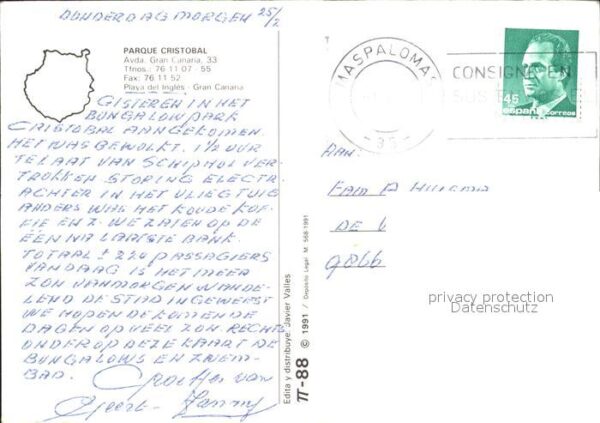 DONDERDAG MORGEN 25/2
PARQUE CRISTOBAL
Avda. Gran Canaria, 33
Tfnos.: 76 11 07 - 55
Fax: 76 11 52
Playa del Inglés - Gran Canaria
GISTEREN IN HET
BUNGALOWPARK
CRISTOBAL AANGEKOMEN.
HET WAS BEWOLKT. 1½ UUR
TE LAAT VAN SCHIPHOL VER-
TROKKEN STORING ELECTR.
ACHTER IN HET VLIEGTUIG
ANDERS WAS HET KOUDE KOF-
FIE ENZ. WE ZATEN OP DE
ÉÉN NA LAATSTE BANK.
TOTAAL ± 220 PASSAGIERS
VANDAAG IS HET MEER
ZON VANMORGEN WANDE-
LEND DE STAD IN GEWEEST
WE HOPEN DE KOMENDE
DAGEN OP VEEL ZON RECHTS
ONDER OP DEZE KAART DE
BUNGALOWS EN ZWEM-
BAD. Groetjes van
Geert - Janny
Edita y distribuye: Javier Valles
π-88 © 1991 / Depósito Legal M. 568-1991
MASPALOMAS
-35-
CONSIGNE EN
SUS
45
españa CORREOS
AAN:
FAM
DE
9866
privacy protection
Datenschutz